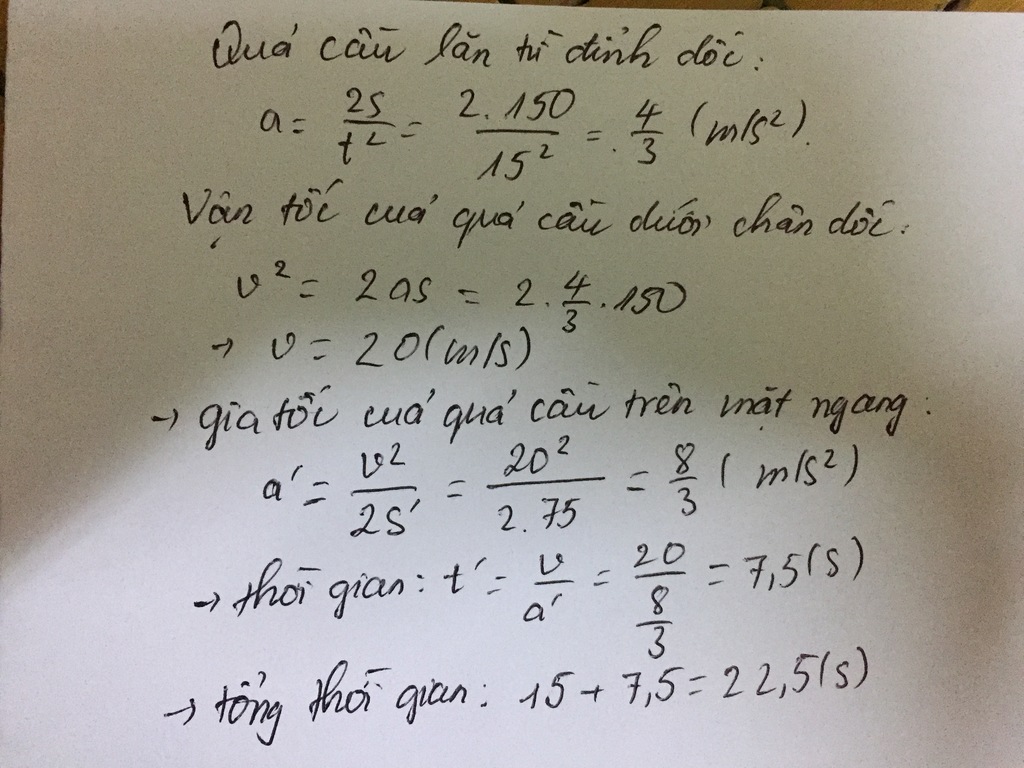 Quả cầu lăn từ đỉnh dốc:
a = 2s/t² = 2.150/15² = 4/3 (m/s²).
Vận tốc cuả quả cầu dưới chân dốc:
v² = 2as = 2.4/3.150
→ v = 20(m/s)
→ gia tốc cuả quả cầu trên mặt ngang:
a' = v²/2s' = 20²/2.75 = 8/3 (m/s²)
→ thời gian: t' = v/a' = 20/(8/3) = 7,5(s)
→ tổng thời gian: 15 + 7,5 = 22,5(s)